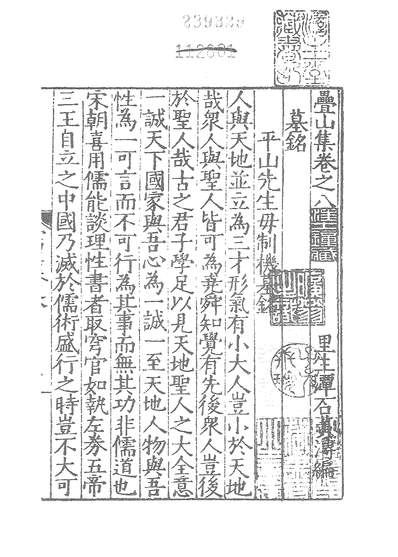 239339
112601
疊山集卷之八
里生潭石黃溥編
墓銘
平山先生毋制機墓銘
人與天地並立為三才形氣有小大人豈小於天地
哉衆人與聖人皆可為堯舜知覺有先後衆人豈後
於聖人哉古之君子學足以見天地聖人之大全意
一誠天下國家與吾心為一誠一至天地人物與吾
性為一可言而不可行為其事而無其功非儒道也
宋朝喜用儒能談理性書者取穹官如執左券五帝
三王自立之中國乃滅於儒術盛行之時豈不大可